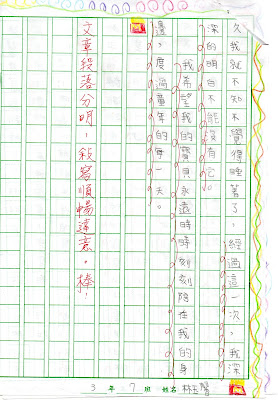 久我就不知不覺得睡著了，經過這一次，我深
深的明白不能沒有它。
我希望我的寶貝永遠時時刻刻陪在我的身
邊，度過童年的每一天。
文章段落分明，敘寫順暢達意。棒！
3年7班 姓名林